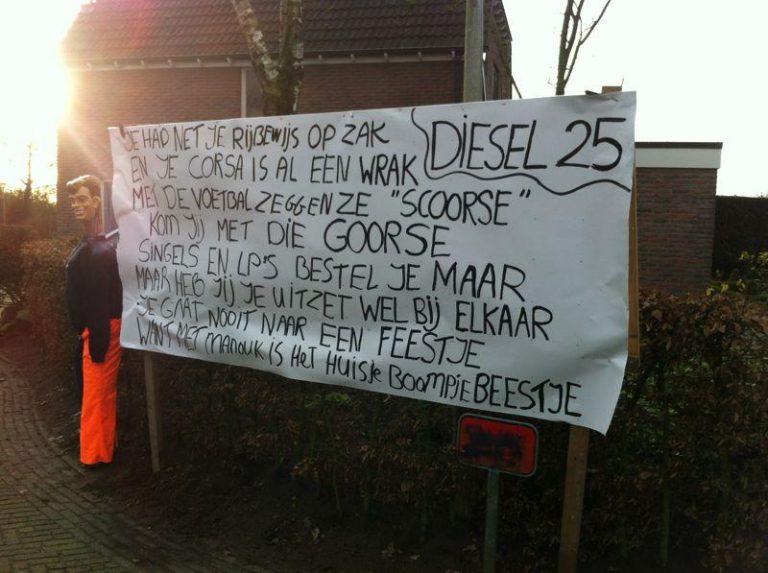 JE HAD NET JE RIJBEWIJS OP ZAK
EN JE CORSA IS AL EEN WRAK
DIESEL 25
MET DE VOETBAL ZEGGEN ZE "SCOORSE"
KOM JIJ MET DIE GOORSE
SINGELS EN LP'S BESTEL JE MAAR
MAAR HEB JIJ JE UITZET WEL BIJ ELKAAR
JE GAAT NOOIT NAAR EEN FEESTJE
WANT MET MANOUK IS HET HUISJE BOOMPJE BEESTJE